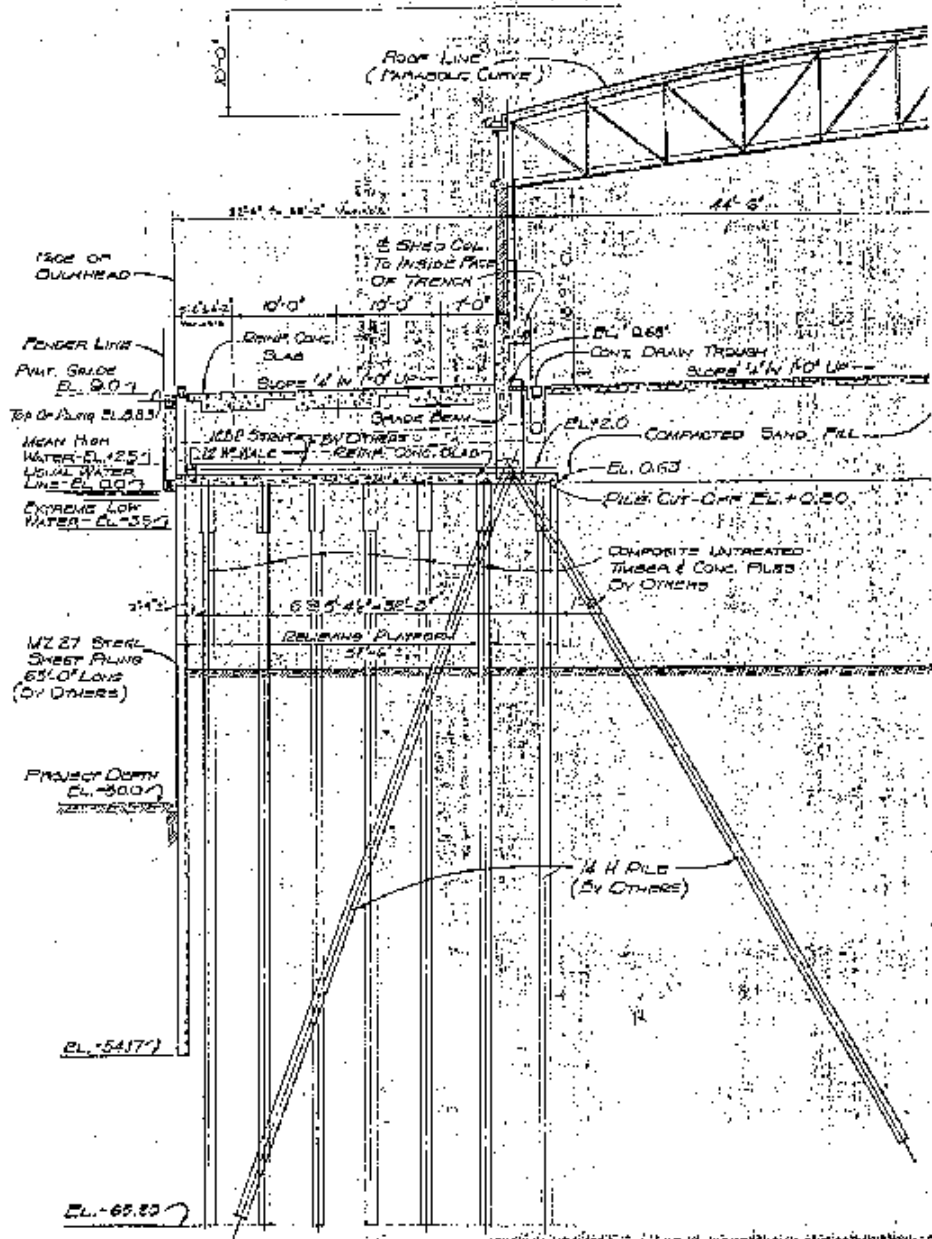 ROOF LINE
(PARABOLIC CURVE)
44'-6"
FACE OF
BULKHEAD
℄ SHED COL.
TO INSIDE FACE
OF TRENCH
10'-0"
10'-0"
FENDER LINE
REINF. CONC.
SLAB
CONT. DRAIN TROUGH
PVMT. GRADE
EL. 9.0
SLOPE 1/4" IN 1'-0" UP
SLOPE 1/4" IN 1'-0" UP
TOP OF PILING EL. 8.83
GRADE BEAM
EL. +2.0
COMPACTED SAND FILL
MEAN HIGH
WATER-EL. +2.5
STRUTS BY OTHERS
12 W WALE
REINF. CONC. SLAB
USUAL WATER
LINE-EL. 0.0
EL. 0.63
PILE CUT-OFF EL. +0.80
EXTREME LOW
WATER-EL. -3.5
COMPOSITE UNTREATED
TIMBER & CONC. PILES
BY OTHERS
RELIEVING PLATFORM
MZ 27 STEEL
SHEET PILING
63'-0" LONG
(BY OTHERS)
PROJECT DEPTH
EL. -30.0
14 H PILE
(BY OTHERS)
EL. -54.17